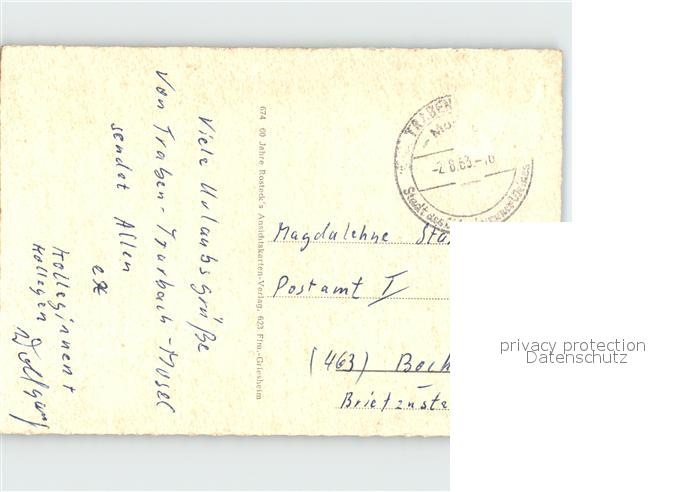 Viele Urlaubsgrüße
Von Traben-Trarbach-Mosel
sendet Allen
Kolleginnen +
Kollegen
Wolfgang
674 60 Jahre Rosteck's Ansichtskarten-Verlag, 623 Ffm.-Griesheim
TRABEN
-2.8.63.-
Stadt des
Magdalehne
Postamt I
(463) Boch
Briefzuste
privacy protection
Datenschutz